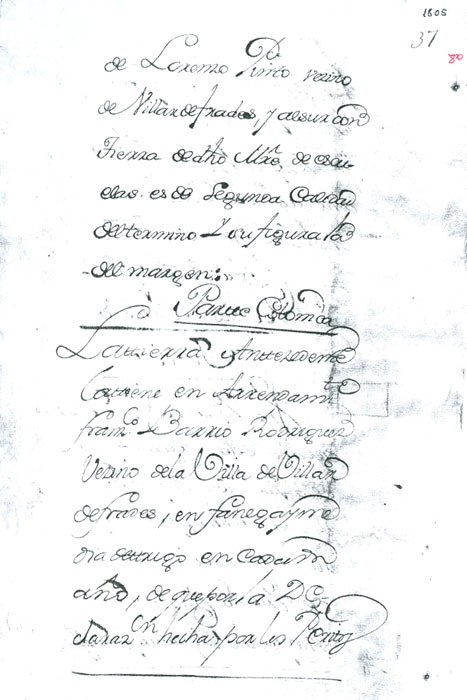 1805
37
80
de Lorenzo Pinto vezino
de Villardefrades, y al sur con
tierra de dho Mro. de escu-
elas. es de Segunda Calidad
del termino Y su figura la
del margen:
Parte Cobrada
La tierra Antezedente
la tiene en Arrendamto
Franco Barrio Rodriguez
Vezino de la Villa de Villar
defrades, en fanega y me
dia de trigo en Cada un
año, de que por la Dec-
laraz.on hecha por los Peritos